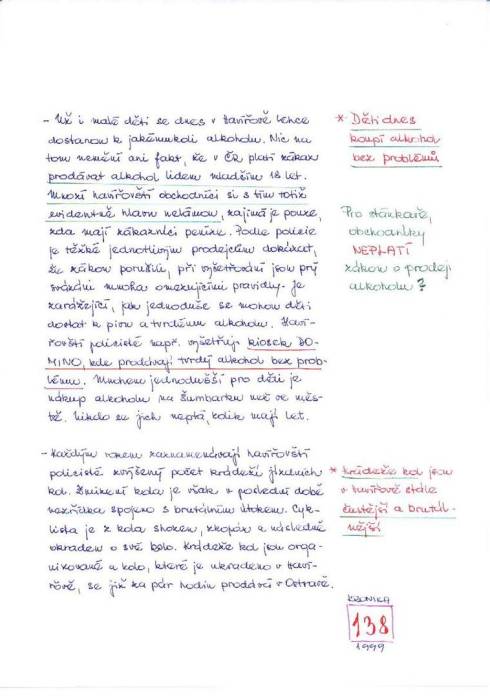 - Už i malé děti se dnes v Havířově lehce
dostanou k jakémukoli alkoholu. Nic na
tom nemění ani fakt, že v ČR platí zákaz
prodávat alkohol lidem mladším 18 let.
Mnozí havířovští obchodníci si s tím totiž
evidentně hlavu nelámou, zajímá je pouze,
zda mají zákazníci peníze. Podle policie
je těžké jednotlivým prodejcům dokázat,
že zákon porušili, při vyšetřování jsou prý
svázáni mnoha omezujícími pravidly. Je
zarážející, jak jednoduše se mohou děti
dostat k pivu a tvrdému alkoholu. Haví-
řovští policisté např. vyšetřují kiosek DO-
MINO, kde prodávají tvrdý alkohol bez prob-
lému. Mnohem jednodušší pro děti je
nákup alkoholu na Šumbarku než ve měs-
tě. Nikdo se jich neptá, kolik mají let.
* Děti dnes
koupí alkohol
bez problémů
Pro stánkaře,
obchodníky
NEPLATÍ
zákon o prodeji
alkoholu?
- Každým rokem zaznamenávají havířovští
policisté zvýšený počet krádeží jízdních
kol. Zmizení kola je však v poslední době
nezřídka spojeno s brutálním útokem. Cyk-
lista je z kola shozen, zkopán a následně
okraden o své kolo. Krádeže kol jsou orga-
nizované a kolo, které je ukradeno v Haví-
řově, se již za pár hodin prodává v Ostravě.
* Krádeže kol jsou
v Havířově stále
častější a brutál-
nější
KRONIKA
138
1999